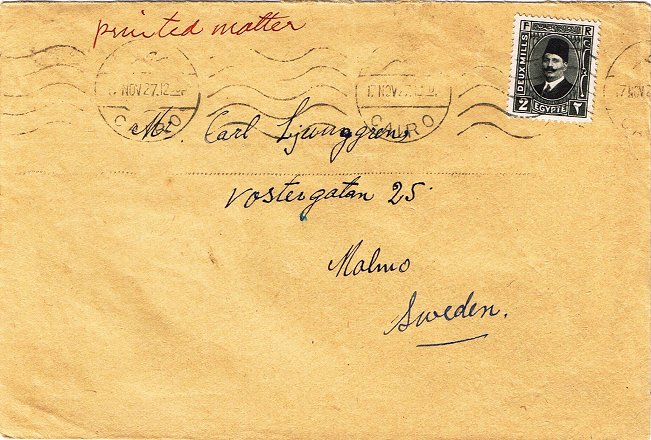 printed matter
DEUX MILLS
EGYPTE
2 ٢
NOV 27 12
CAIRO
NOV 27
CAIRO
7 NOV 2
Mr. Carl Ljunggren,
Vostergatan 25
Malmo
Sweden.